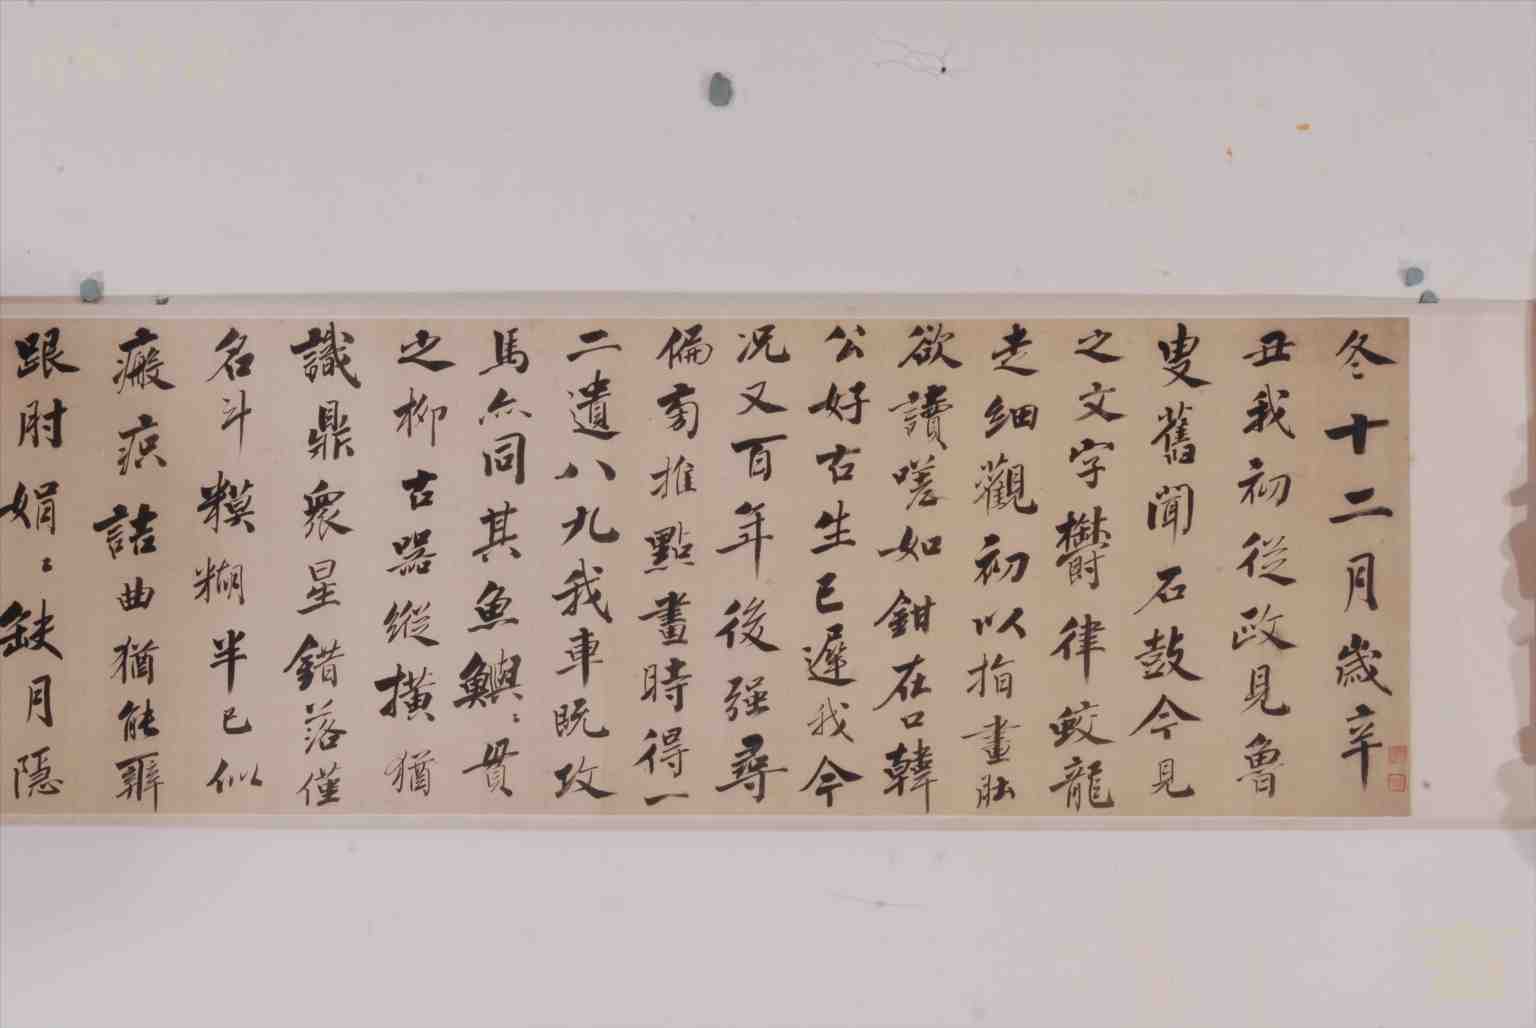 冬十二月歲辛
丑我初從政見魯
叟舊聞石鼓今見
之文字鬱律蛟龍
走細觀初以指畫肚
欲讀嗟如鉗在口韓
公好古生已遲我今
况又百年後強尋
偏旁推點畫時得一
二遺八九我車既攻
馬亦同其魚鱮〻貫
之柳古器縱橫猶
識鼎衆星錯落僅
名斗糢糊半已似
瘢痕詰曲猶能辨
跟肘娟〻缺月隱